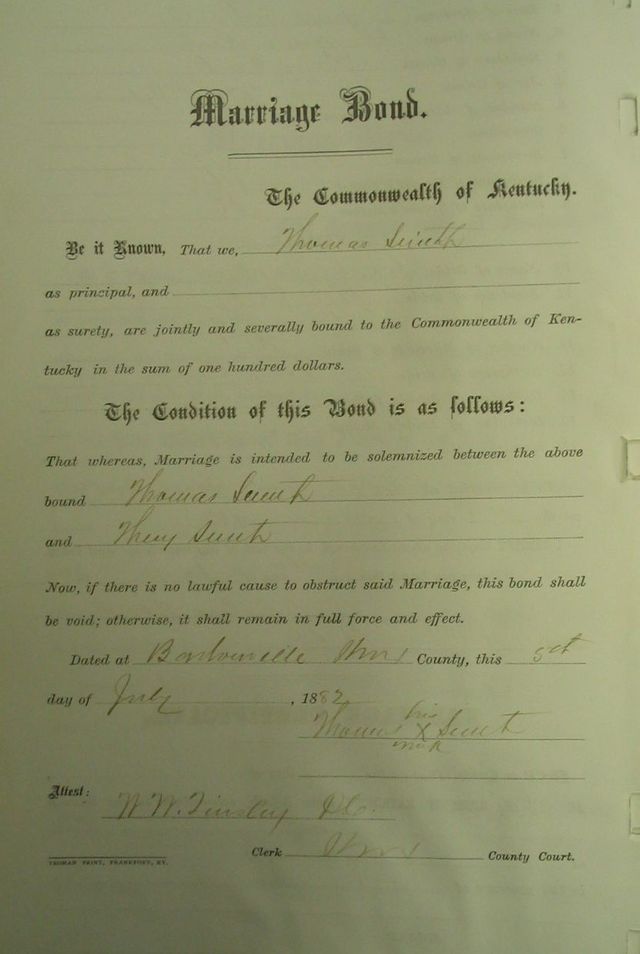 Marriage Bond.
The Commonwealth of Kentucky.
Be it Known, That we, Thomas Smith
as principal, and
as surety, are jointly and severally bound to the Commonwealth of Ken-
tucky in the sum of one hundred dollars.
The Condition of this Bond is as follows:
That whereas, Marriage is intended to be solemnized between the above
bound Thomas Smith
and Smith
Now, if there is no lawful cause to obstruct said Marriage, this bond shall
be void; otherwise, it shall remain in full force and effect.
Dated at Barbourville Knox County, this
day of July, 1882
his
Thomas X Smith
mark
Attest:
W W. Tinsley
Clerk Knox County Court.
YEOMAN PRINT, FRANKFORT, KY.